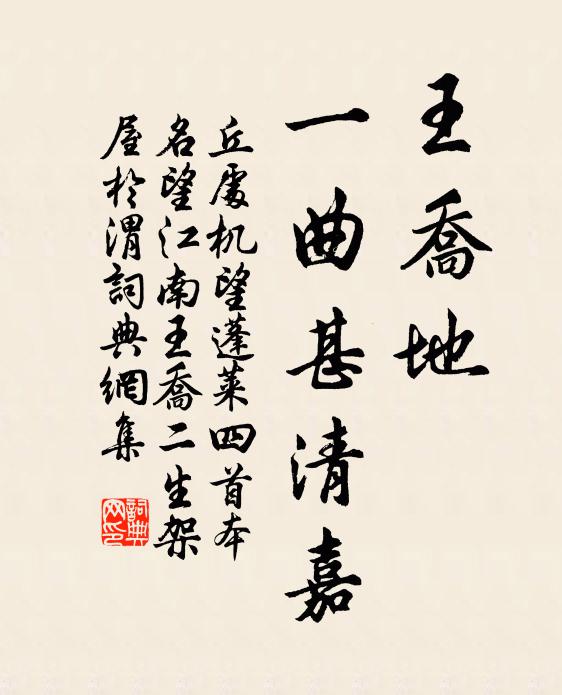 王喬地
一曲甚清嘉
丘處机望蓬莱四首本
名望江南王喬二生架
屋於渭詞典網集
詞典
网印